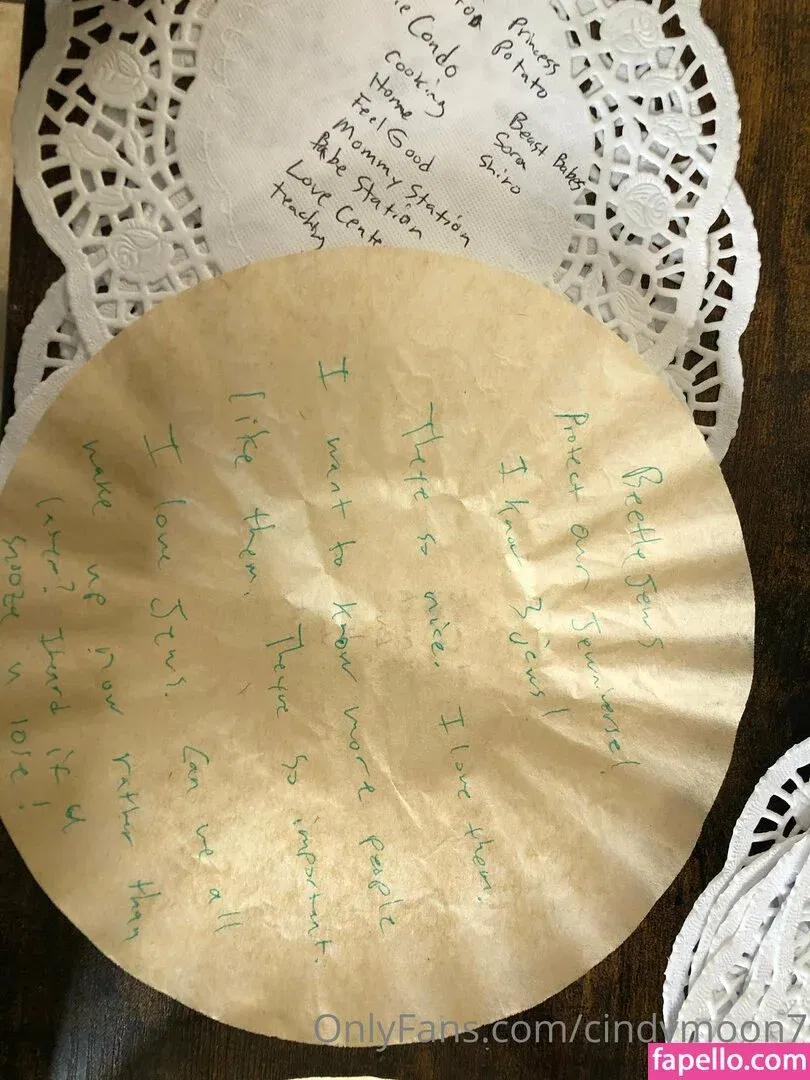 Condo
Cooking
Home
Feel Good
Mommy Station
Babe Station
Love Cente
teaching
Princess
Potato
Beast Babes
Sora
Shiro
Beetle Jews
Protect our Jewniverse!
I know 3 jews!
There so nice. I love them.
I want to know more people
like them. Theyre so important.
I love Jews. Can we all
wake up now rather than
later? I heard if u
snooze u lose!
OnlyFans.com/cindymoon7
fapello.com